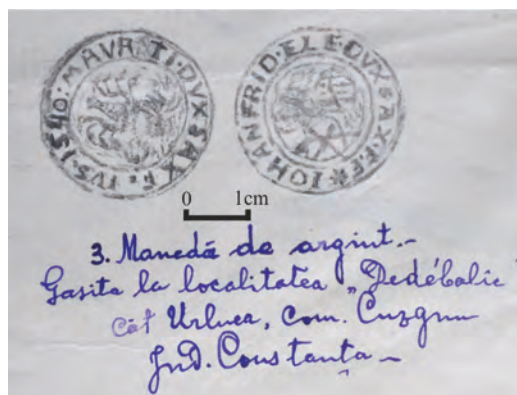 MAVR TI·DVX SAX F·IVS·1540:
IOHAN FRID·ELE·DVX SAX·F·F*
0 1cm
3. Monedă de argint.-
Gasita la localitatea „Dedébalic"
Cát Urluea, com. Cuzgun
Jud. Constanța -